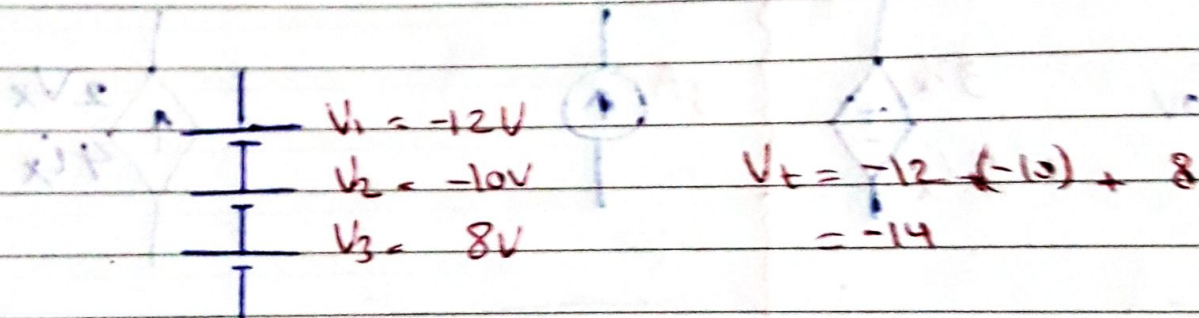 V1 = -12V
V2 = -10V
V3 = 8V
Vt = -12 +(-10) + 8
= -14